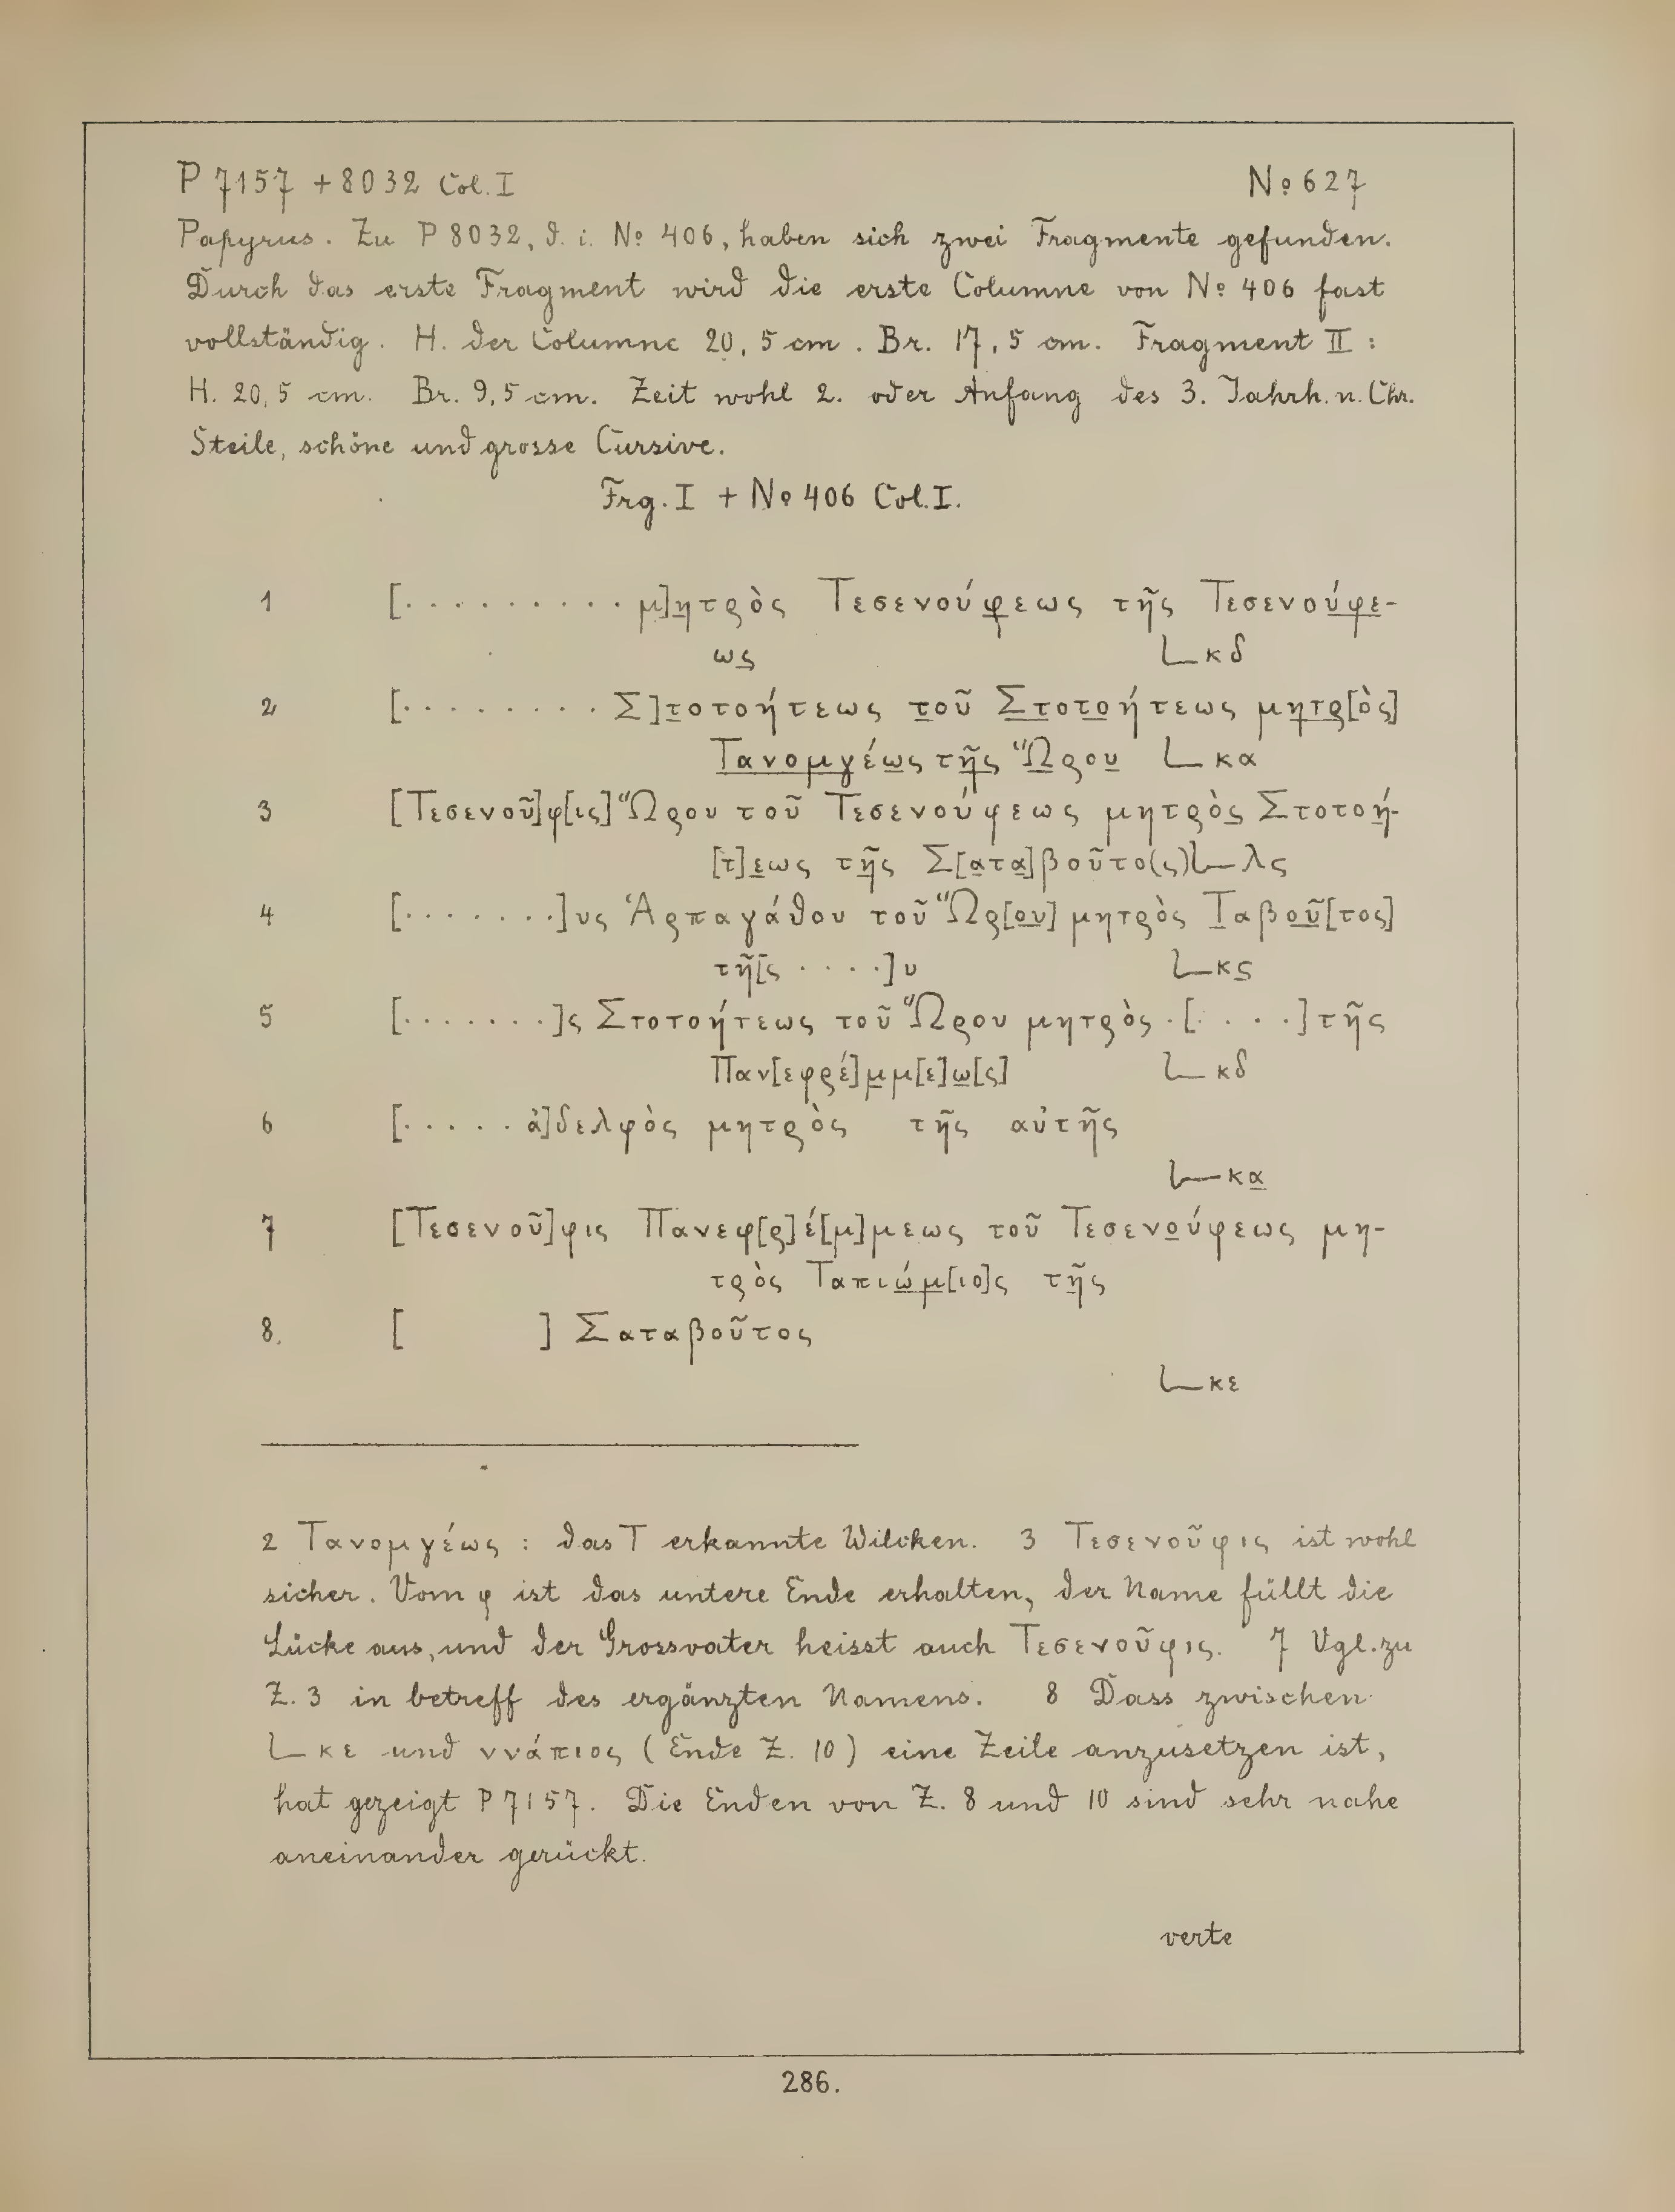 P 7157 + 8032 Col. I No 627
Papyrus. Zu P 8032, d. i. No 406, haben sich zwei Fragmente gefunden.
Durch das erste Fragment wird die erste Columne von No 406 fast
vollständig. H. der Columne 20,5 cm. Br. 17,5 cm. Fragment II :
H. 20,5 cm. Br. 9,5 cm. Zeit wohl 2. oder Anfang des 3. Jahrh. n. Chr.
Steile, schöne und grosse Cursive.
Frg. I + No 406 Col. I.
1 [· · · · · · · · · · μ]η̲τρὸς Τεσενούφ̲εως τῆς Τεσενού̲φ̲ε̲-
ως̲ 𐅹κδ
2 [· · · · · · · · · Σ]τ̲οτοήτεως τ̲οῦ Σ̲τ̲οτ̲ο̲ήτεως μη̲τ̲ρ̲[ὸς]
Τ̲α̲ν̲ο̲μ̲γ̲έω̲ς τῆ̲ς̲ Ὥ̲ρου̲ 𐅹κα
3 [Τεσενοῦ]φ[ις] Ὥρου τοῦ Τεσενούφεως μητρὸς̲ Στοτοή̲-
[τ]ε̲ως τῆ̲ς Σ[α̲τα̲]βοῦτο(ς) 𐅹λς
4 [· · · · · · ·]υς Ἁρπαγάθου τοῦ Ὥρ[ο̲υ̲] μητρὸς Τ̲αβο̲ῦ̲[τος]
τῆ[ς · · · ·]υ 𐅹κς̲
5 [· · · · · · ·]ς Στοτοήτεως τοῦ Ὥρου μητρὸς · [· · · ·] τῆς
Παν[εφρέ]μ̲μ[ε]ω̲[ς] 𐅹κδ
6 [· · · · · ἀ]δελφὸς μητρὸς τῆς αὐτῆς
𐅹κα̲
7 [Τεσενοῦ]φις Πανεφ[ρ]έ[μ]μεως τοῦ Τεσενο̲ύφεως μη-
τρὸς Ταπιώ̲μ̲[ιο]ς τῆ̲ς
8. [ ] Σαταβοῦτος
𐅹κε
2 Τανομγέως : das Τ erkannte Wilcken. 3 Τεσενοῦφις ist wohl
sicher. Vom φ ist das untere Ende erhalten, der Name füllt die
Lücke aus, und der Grossvater heisst auch Τεσενοῦφις. 7 Vgl. zu
Z. 3 in betreff des ergänzten Namens. 8 Dass zwischen
𐅹κε und ννάπιος (Ende Z. 10) eine Zeile anzusetzen ist,
hat gezeigt P 7157. Die Enden von Z. 8 und 10 sind sehr nahe
aneinander gerückt.
verte
286.